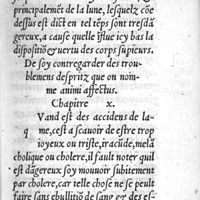 principalemẽt de la lune, lesquelz cõe
dessus est dict en tel tẽps sont tresdã
gereux, a cause quelle iflue icy bas la
dispositiõ & vertu des corps supieurs.
De soy contregarder des trou-
blemens despritz que on nom-
me animi affectus.
Chapitre x.
Vand est des accidens de la-
q me, cest a scauoir de estre trop
ioyeux ou triste, iracũde, melã
cholique ou cholere, il fault noter quil
est dãgereux soy mouuoir subitement
par cholere, car telle chose ne se peult
faire sans ebullitiõ de sang & des es-